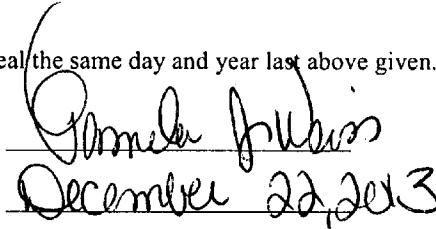 eal the same day and year last above given.
Pamela J Weiss
December 22, 2013